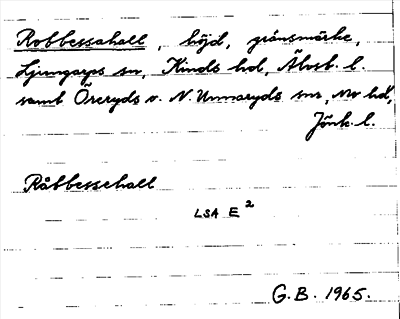 Robbessahall, höjd, gränsmärke,
Ljungarps sn, Kinds hd, Älvsb. l.
samt Öreryds o. N. Unnaryds snr, Mo hd,
Jönk. l.
Råbbessehall
LSA E²
G.B. 1965.